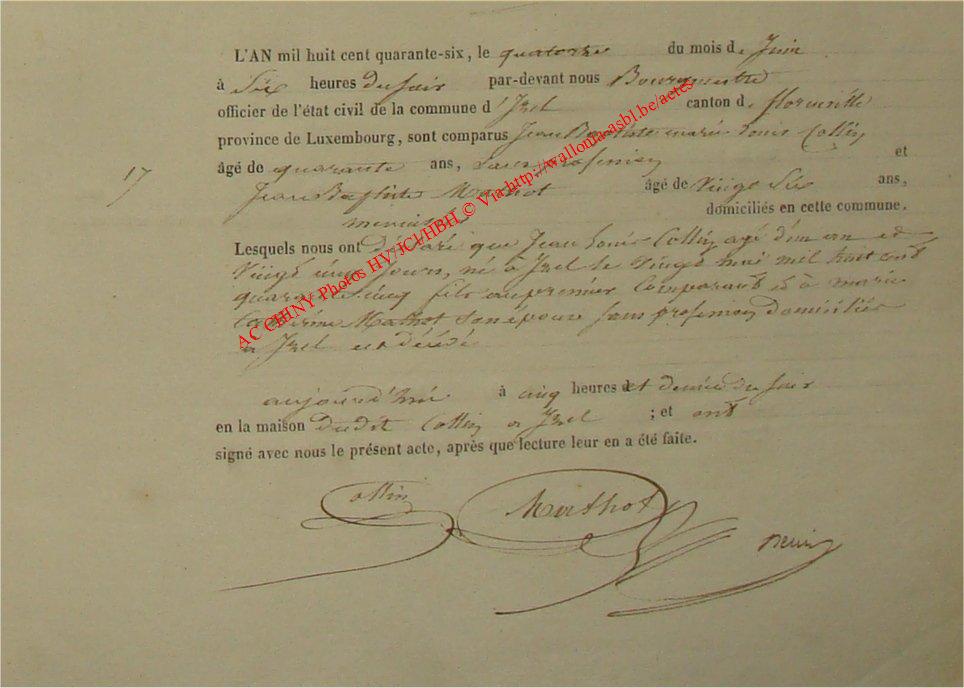 L'AN mil huit cent quarante-six, le quatorze du mois de Juin
à Six heures du Soir par-devant nous Bourgmestre
officier de l'état civil de la commune d'Izel canton de florenville
province de Luxembourg, sont comparus Jean Baptiste marie Louis Collin
17
âgé de quarante ans, Sans profession et
Jean Baptiste Mathot âgé de Vingt Six ans,
domiciliés en cette commune.
Lesquels nous ont déclaré que Jean Louis Collin agé d'un an et
Vingt cinq Jours, né à Izel le Vingt mai mil huit cent
quarante Cinq fils au premier Comparant et à marie
Mathot Son épouse Sans profession domiciliés
a Izel est décédé
aujourd'hui à cinq heures et demie du Soir
en la maison dudit Collin a Izel ; et ont
signé avec nous le présent acte, après que lecture leur en a été faite.
Collin Mathot
AC CHINY Photos HV/JCl/HBH © Via http://wallonia-asbl.be/actes